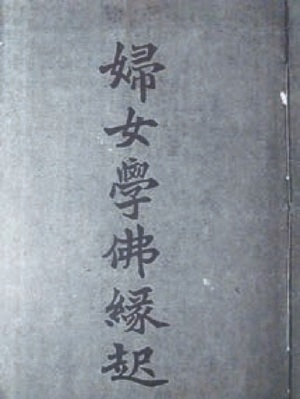 婦女學佛緣起